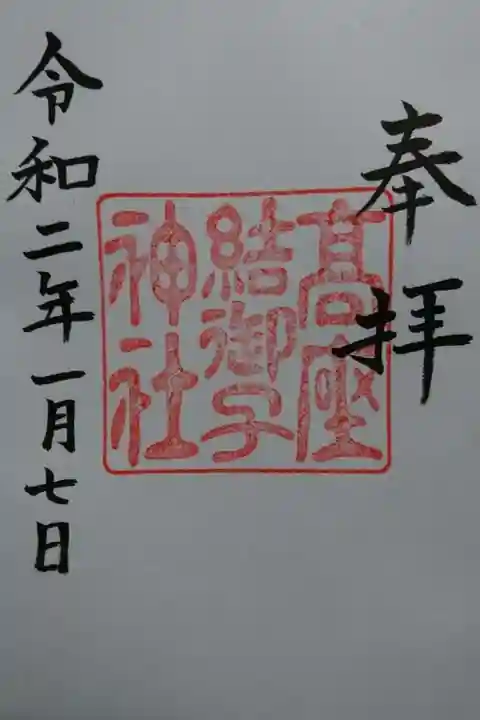 奉拝
髙座
結御子
神社
令和二年一月七日